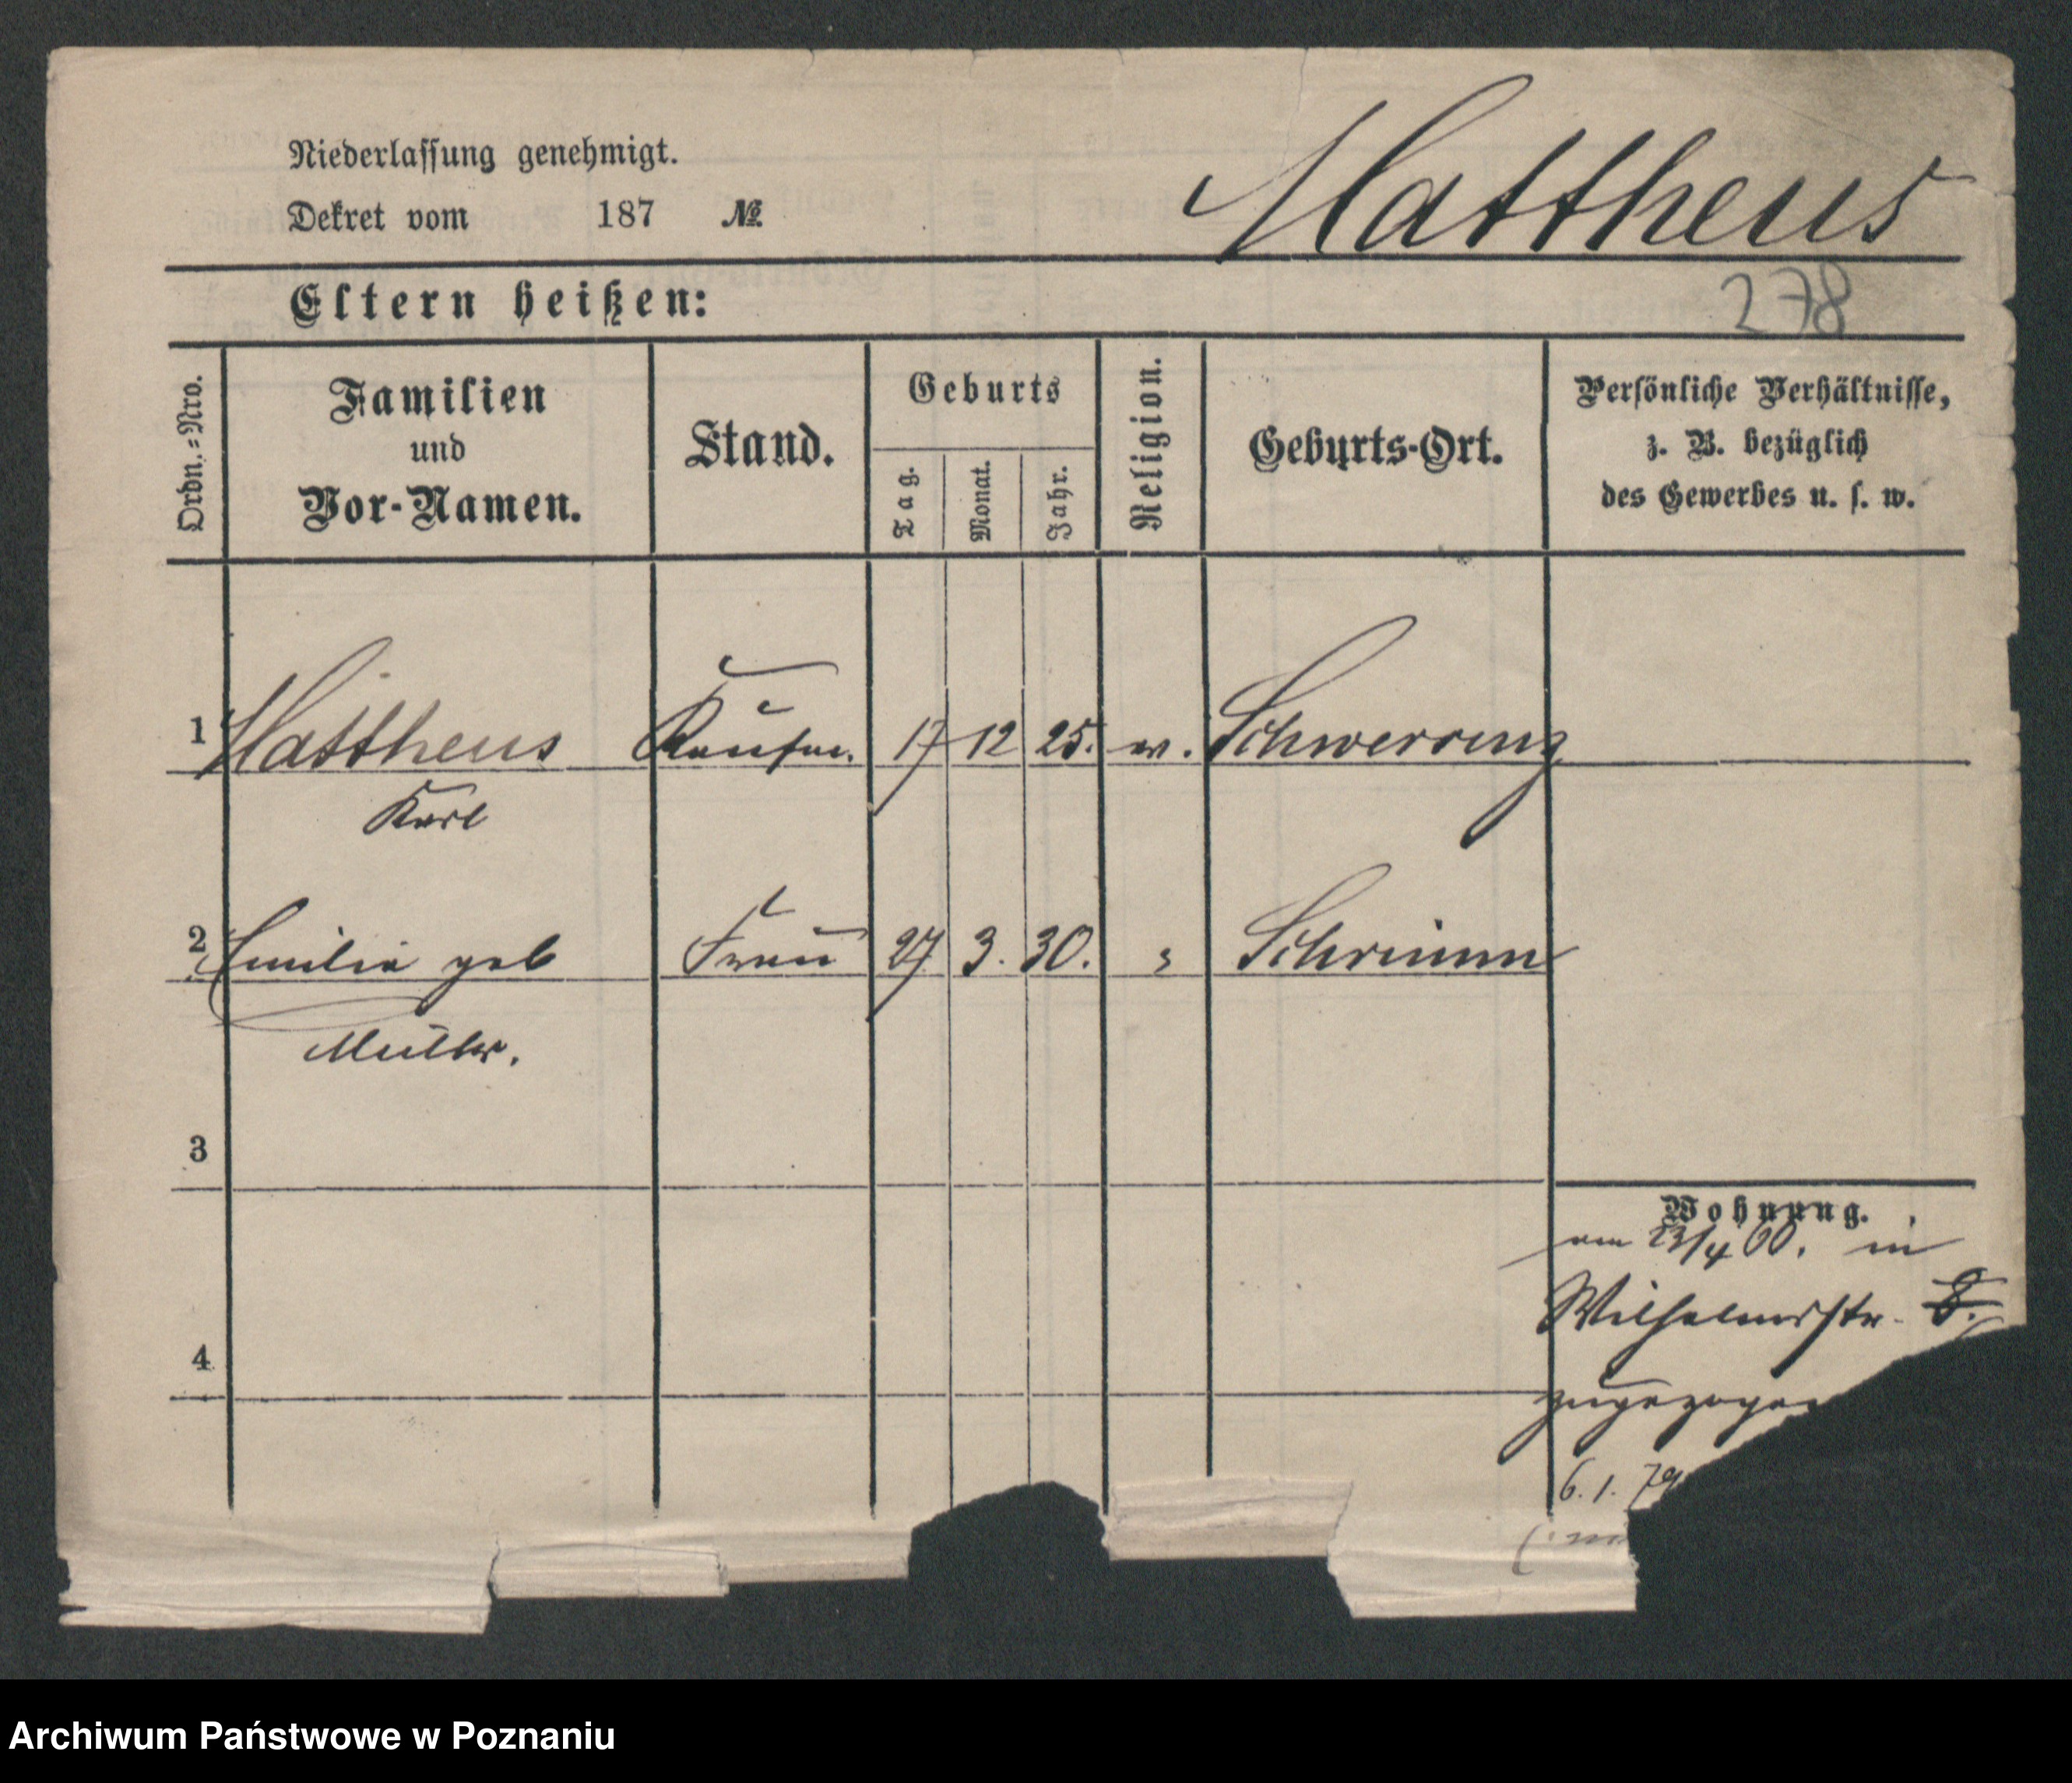 Niederlassung genehmigt.
Dekret vom 187 №
Mattheus
278
Eltern heißen:
Ordn.-Nro.
Familien
und
Vor-Namen.
Stand.
Geburts
Tag.
Monat.
Jahr.
Religion.
Geburts-Ort.
Persönliche Verhältnisse,
z. B. bezüglich
des Gewerbes u. s. w.
1 Mattheus Kaufm. 17 12 25. ev. Schwersenz
Karl
2 Emilie geb Frau 27 3. 30. Schrimm
Müller.
3
Wohnung.
am 23/4 60. in
Wilhelmsstr. 8.
4
zugezogen
6. 1. 79
Archiwum Państwowe w Poznaniu